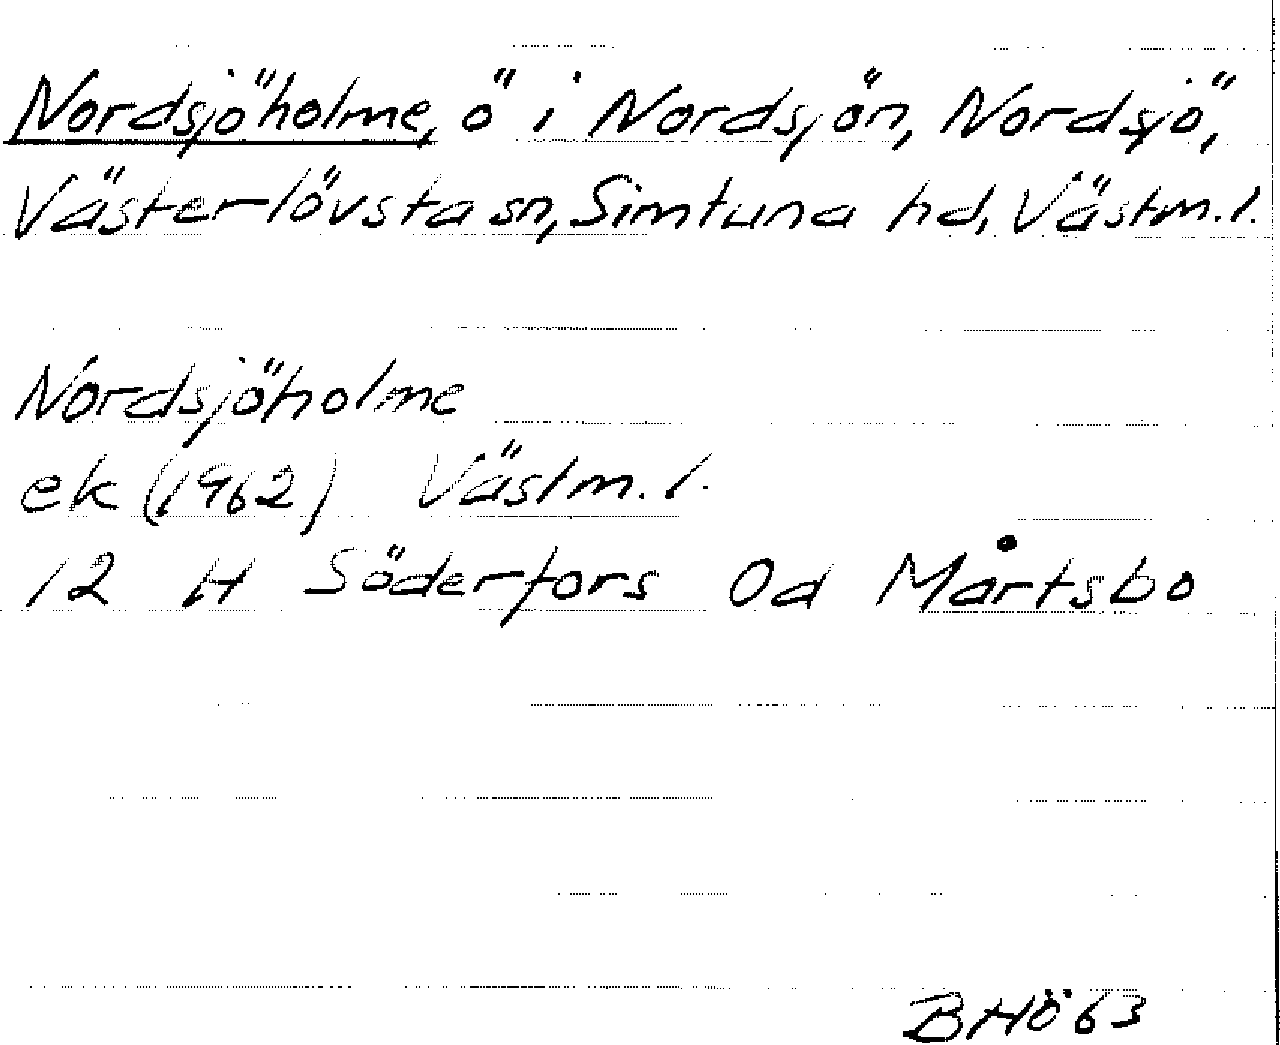 Nordsjöholme, ö i Nordsjön, Nordsjö,
Västerlövsta sn, Simtuna hd, Västm. l.
Nordsjöholme
ek (1962) Västm. l.
12 H Söderfors 0d Mårtsbo
BHö 63